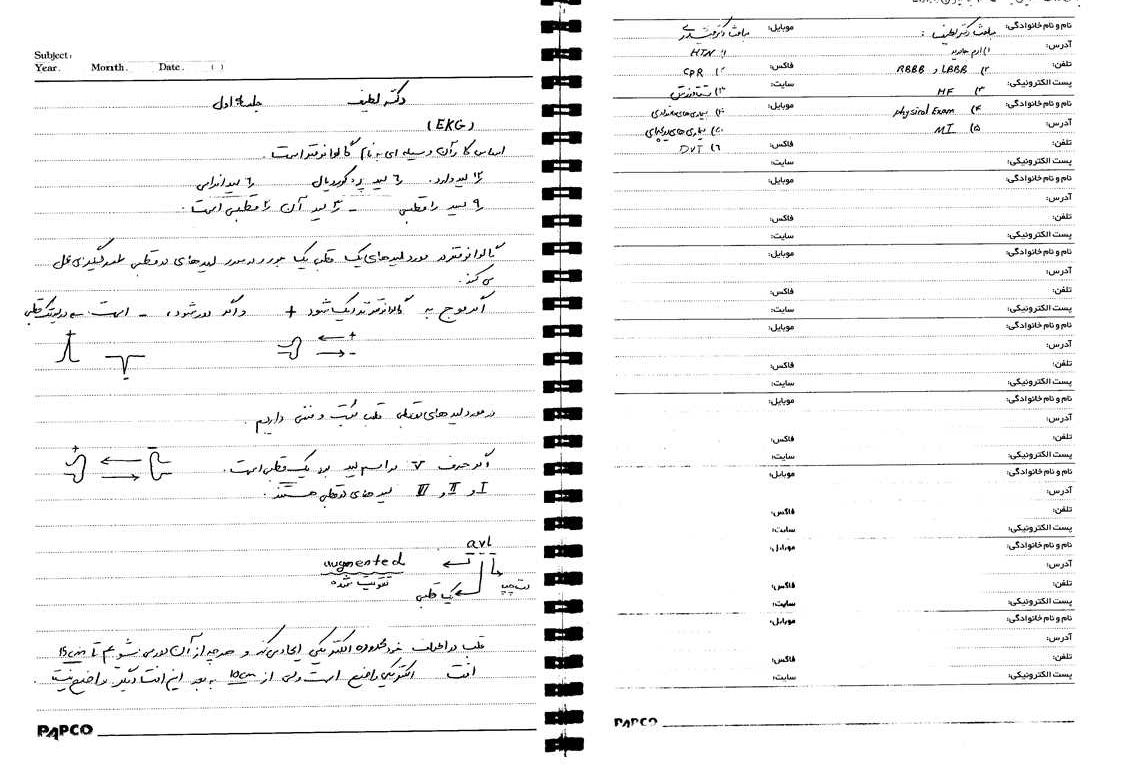 Subject:
Year. Month. Date. ( )
دکتر لطیف جلسه اول
(EKG)
اساس کار آن وسیله ای به نام گالوانومتر است.
۱۲ لید دارد. ۶ تا لید پره کوردیال ۶ تا لید اندامی
۹ لید تک قطبی - ۳ لید آن دو قطبی است.
گالوانومتر در مورد لیدهای یک قطبی یک جور و در مورد لیدهای دو قطبی طور دیگری عمل
می کند.
اگر موج به گالوانومتر نزدیک شود + و اگر دور شود، - است
+
+
-
در مورد لیدهای دو قطبی قطب مثبت و منفی داریم.
اگر حرف V در اسم لید بود یک قطبی است.
+ -
I و II و III لیدهای دو قطبی هستند.
avl
augmented
تقویت شده
یک قطبی
دست چپ
قلب در اطراف خود محدوده الکتریکی ایجاد می کند و هر چه از آن دور می شویم تا 15cm
افت الکتریکی واضح است ولی از 15cm به بعد این افت دیگر واضح نیست.
PAPCO
نام و نام خانوادگی: مباحث دکتر لطیف: موبایل: مباحث دکتر
آدرس: ۱) HTN
تلفن: ۲) LBBB و RBBB فاکس: ۲) CPR
پست الکترونیکی: ۳) HF سایت: ۳)
نام و نام خانوادگی: ۴) physical Exam موبایل: ۴) بیماری های
آدرس: ۵) MI ۵) بیماری های
تلفن: فاکس: ۶) DVT
پست الکترونیکی: سایت:
نام و نام خانوادگی: موبایل:
آدرس:
تلفن: فاکس:
پست الکترونیکی: سایت:
نام و نام خانوادگی: موبایل:
آدرس:
تلفن: فاکس:
پست الکترونیکی: سایت:
نام و نام خانوادگی: موبایل:
آدرس:
تلفن: فاکس:
پست الکترونیکی: سایت:
نام و نام خانوادگی: موبایل:
آدرس:
تلفن: فاکس:
پست الکترونیکی: سایت:
نام و نام خانوادگی: موبایل:
آدرس:
تلفن: فاکس:
پست الکترونیکی: سایت:
نام و نام خانوادگی: موبایل:
آدرس:
تلفن: فاکس:
پست الکترونیکی: سایت:
نام و نام خانوادگی: موبایل:
آدرس:
تلفن: فاکس:
پست الکترونیکی: سایت:
PAPCO